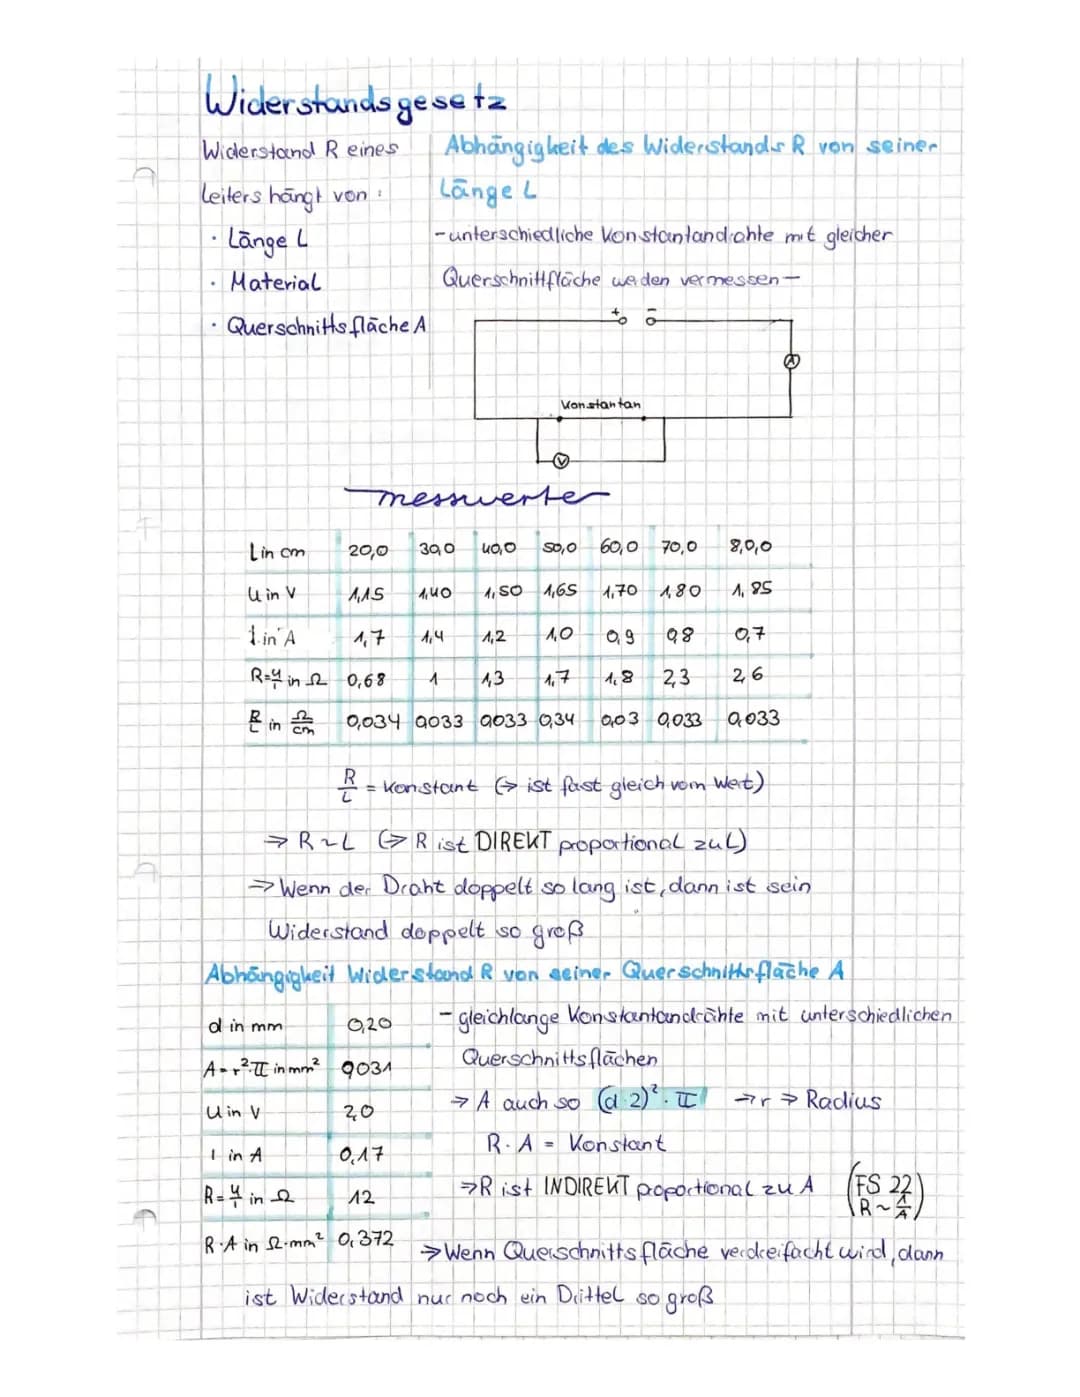 Widerstandsgesetz
Widerstand R eines
Leiters hängt von :
· Länge L
· Material
· Querschnittsfläche A
Abhängigkeit des Widerstands R von seiner
Länge L
- unterschiedliche Konstantandrähte mit gleicher
Querschnittfläche werden vermessen -
+ -
A
Konstantan
V
messwerte
L in cm 20,0 30,0 40,0 50,0 60,0 70,0 8,0,0
U in V 1,15 1,40 1,50 1,65 1,70 1,80 1,85
I in A 1,7 1,4 1,2 1,0 0,9 0,8 0,7
R=U/I in Ω 0,68 1 1,3 1,7 1,8 2,3 2,6
R/L in Ω/cm 0,034 0,033 0,033 0,34 0,03 0,033 0,033
R/L = konstant (→ ist fast gleich vom Wert)
⇒ R ~ L (⇒ R ist DIREKT proportional zu L)
⇒ Wenn der Draht doppelt so lang ist, dann ist sein
Widerstand doppelt so groß
Abhängigkeit Widerstand R von seiner Querschnittsfläche A
d in mm 0,20
A=r²·π in mm² 0,031
U in V 2,0
I in A 0,17
R=U/I in Ω 12
R·A in Ω·mm² 0,372
- gleichlange Konstantandrähte mit unterschiedlichen
Querschnittsflächen
→ A auch so (d:2)²·π → r ⇒ Radius
R·A = Konstant
⇒ R ist INDIREKT proportional zu A (FS 22
R ~ 1/A)
⇒ Wenn Querschnittsfläche verdreifacht wird, dann
ist Widerstand nur noch ein Drittel so groß